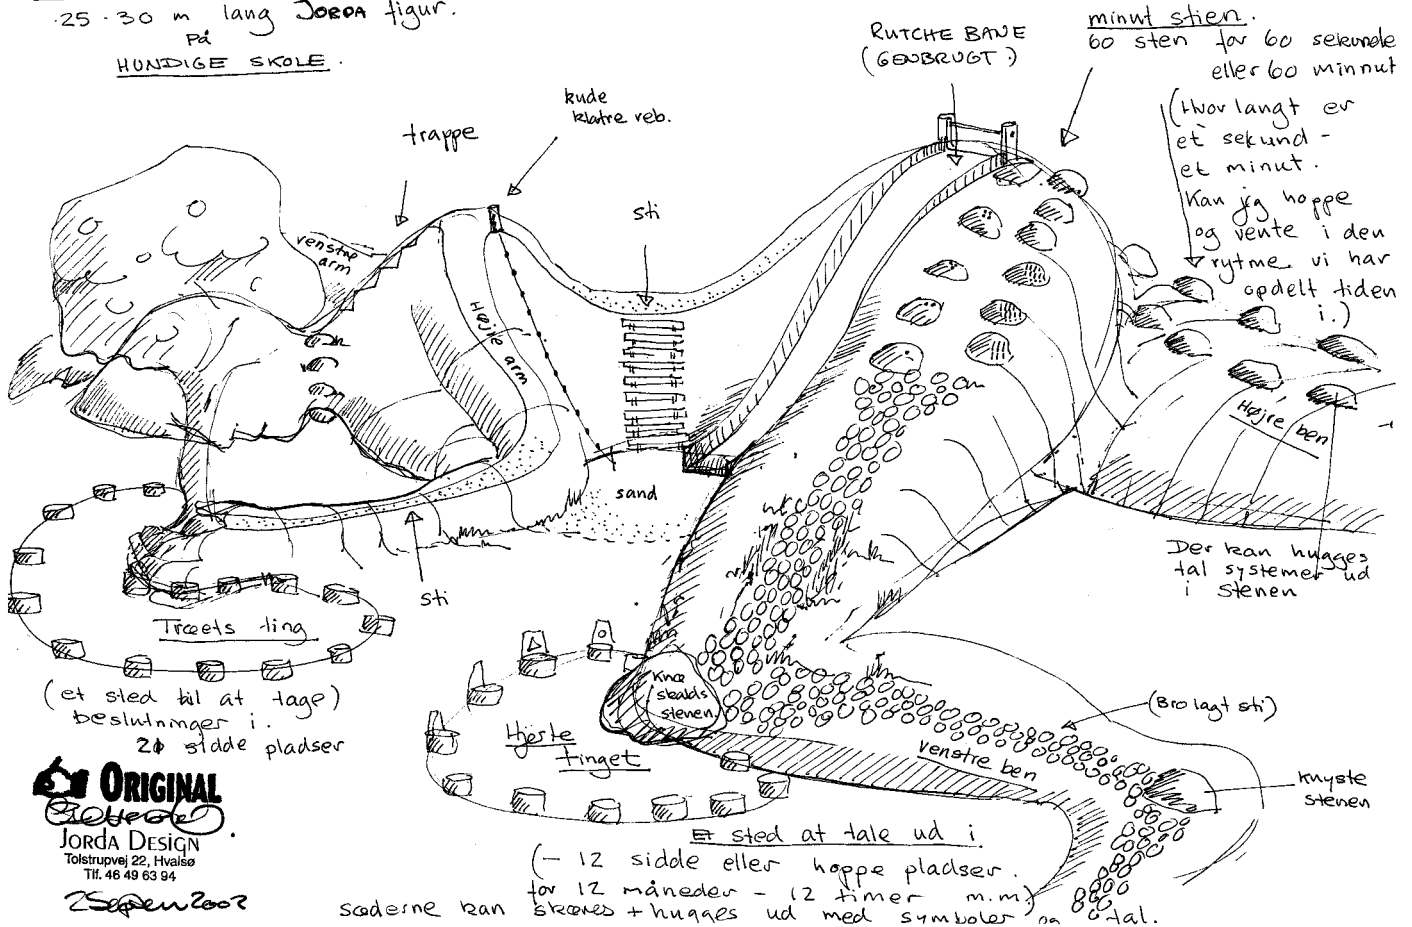 25-30 m lang JORDA figur.
På
HUNDIGE SKOLE.
RUTCHE BANE
(GENBRUGT.)
minut stien.
60 sten for 60 sekunde
eller 60 minnut
(Hvor langt er
et sekund -
et minut.
Kan jeg hoppe
og vente i den
rytme vi har
opdelt tiden
i.)
kude
klatre reb.
trappe
sti
venstre
arm
Højre arm
sand
sti
Højre ben
Der kan hugges
tal systemer ud
i stenen
Træets ting
(et sted til at tage)
beslutninger i.
sidde pladser
Knæ
skalds
stenen
Hjerte
tinget
(Brolagt sti)
venstre ben
knyste
stenen
Et sted at tale ud i
(- 12 sidde eller hoppe pladser.
for 12 måneder - 12 timer m.m.)
sæderne kan skæres + hugges ud med symboler og tal.
ORIGINAL
JORDA DESIGN
Tolstrupvej 22, Hvalsø
Tlf. 46 49 63 94